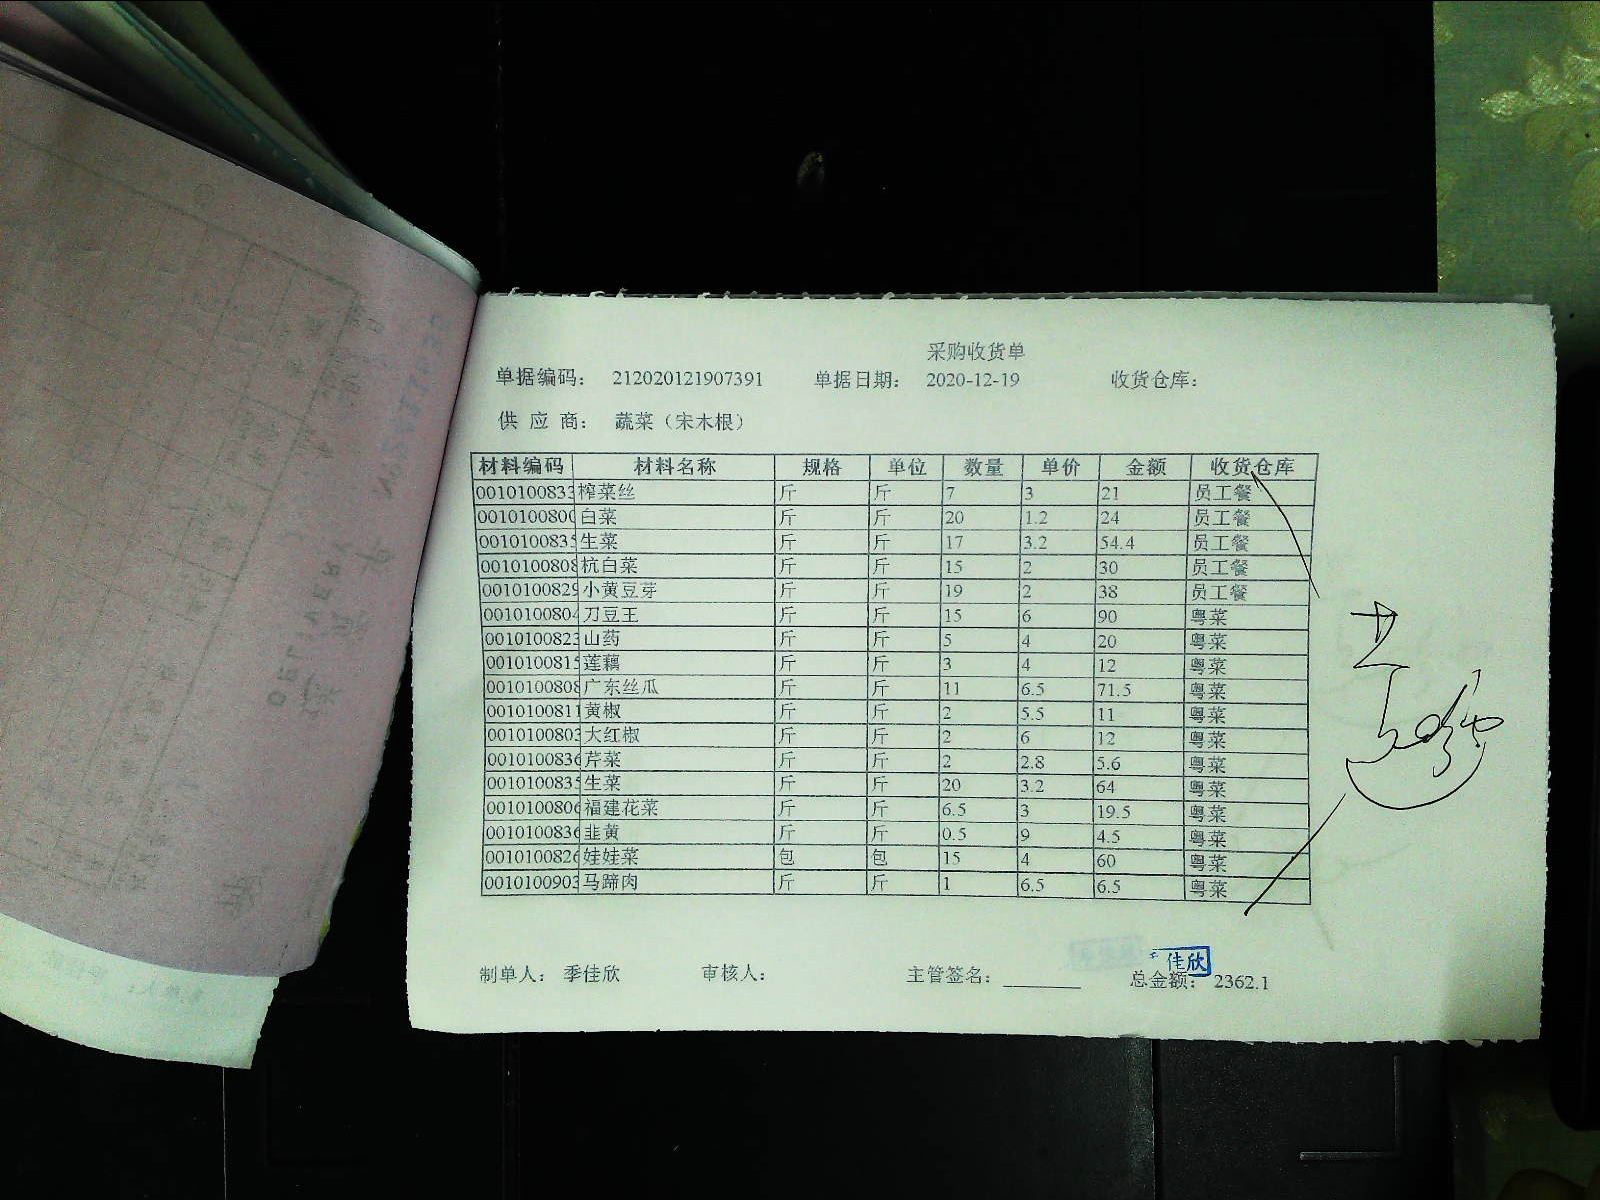 采购收货单
单据编码： 212020121907391 单据日期： 2020-12-19 收货仓库：
供 应 商： 蔬菜（宋木根）
材料编码 材料名称 规格 单位 数量 单价 金额 收货仓库
0010100833 榨菜丝 斤 斤 7 3 21 员工餐
001010080 白菜 斤 斤 20 1.2 24 员工餐
001010083 生菜 斤 斤 17 3.2 54.4 员工餐
0010100808 杭白菜 斤 斤 15 2 30 员工餐
0010100829 小黄豆芽 斤 斤 19 2 38 员工餐
0010100804 刀豆王 斤 斤 15 6 90 粤菜
0010100823 山药 斤 斤 5 4 20 粤菜
0010100815 莲藕 斤 斤 3 4 12 粤菜
0010100808 广东丝瓜 斤 斤 11 6.5 71.5 粤菜
0010100811 黄椒 斤 斤 2 5.5 11 粤菜
0010100803 大红椒 斤 斤 2 6 12 粤菜
0010100836 芹菜 斤 斤 2 2.8 5.6 粤菜
0010100835 生菜 斤 斤 20 3.2 64 粤菜
0010100806 福建花菜 斤 斤 6.5 3 19.5 粤菜
0010100836 韭黄 斤 斤 0.5 9 4.5 粤菜
0010100826 娃娃菜 包 包 15 4 60 粤菜
0010100903 马蹄肉 斤 斤 1 6.5 6.5 粤菜
佳欣
制单人： 季佳欣 审核人： 主管签名： 总金额： 2362.1